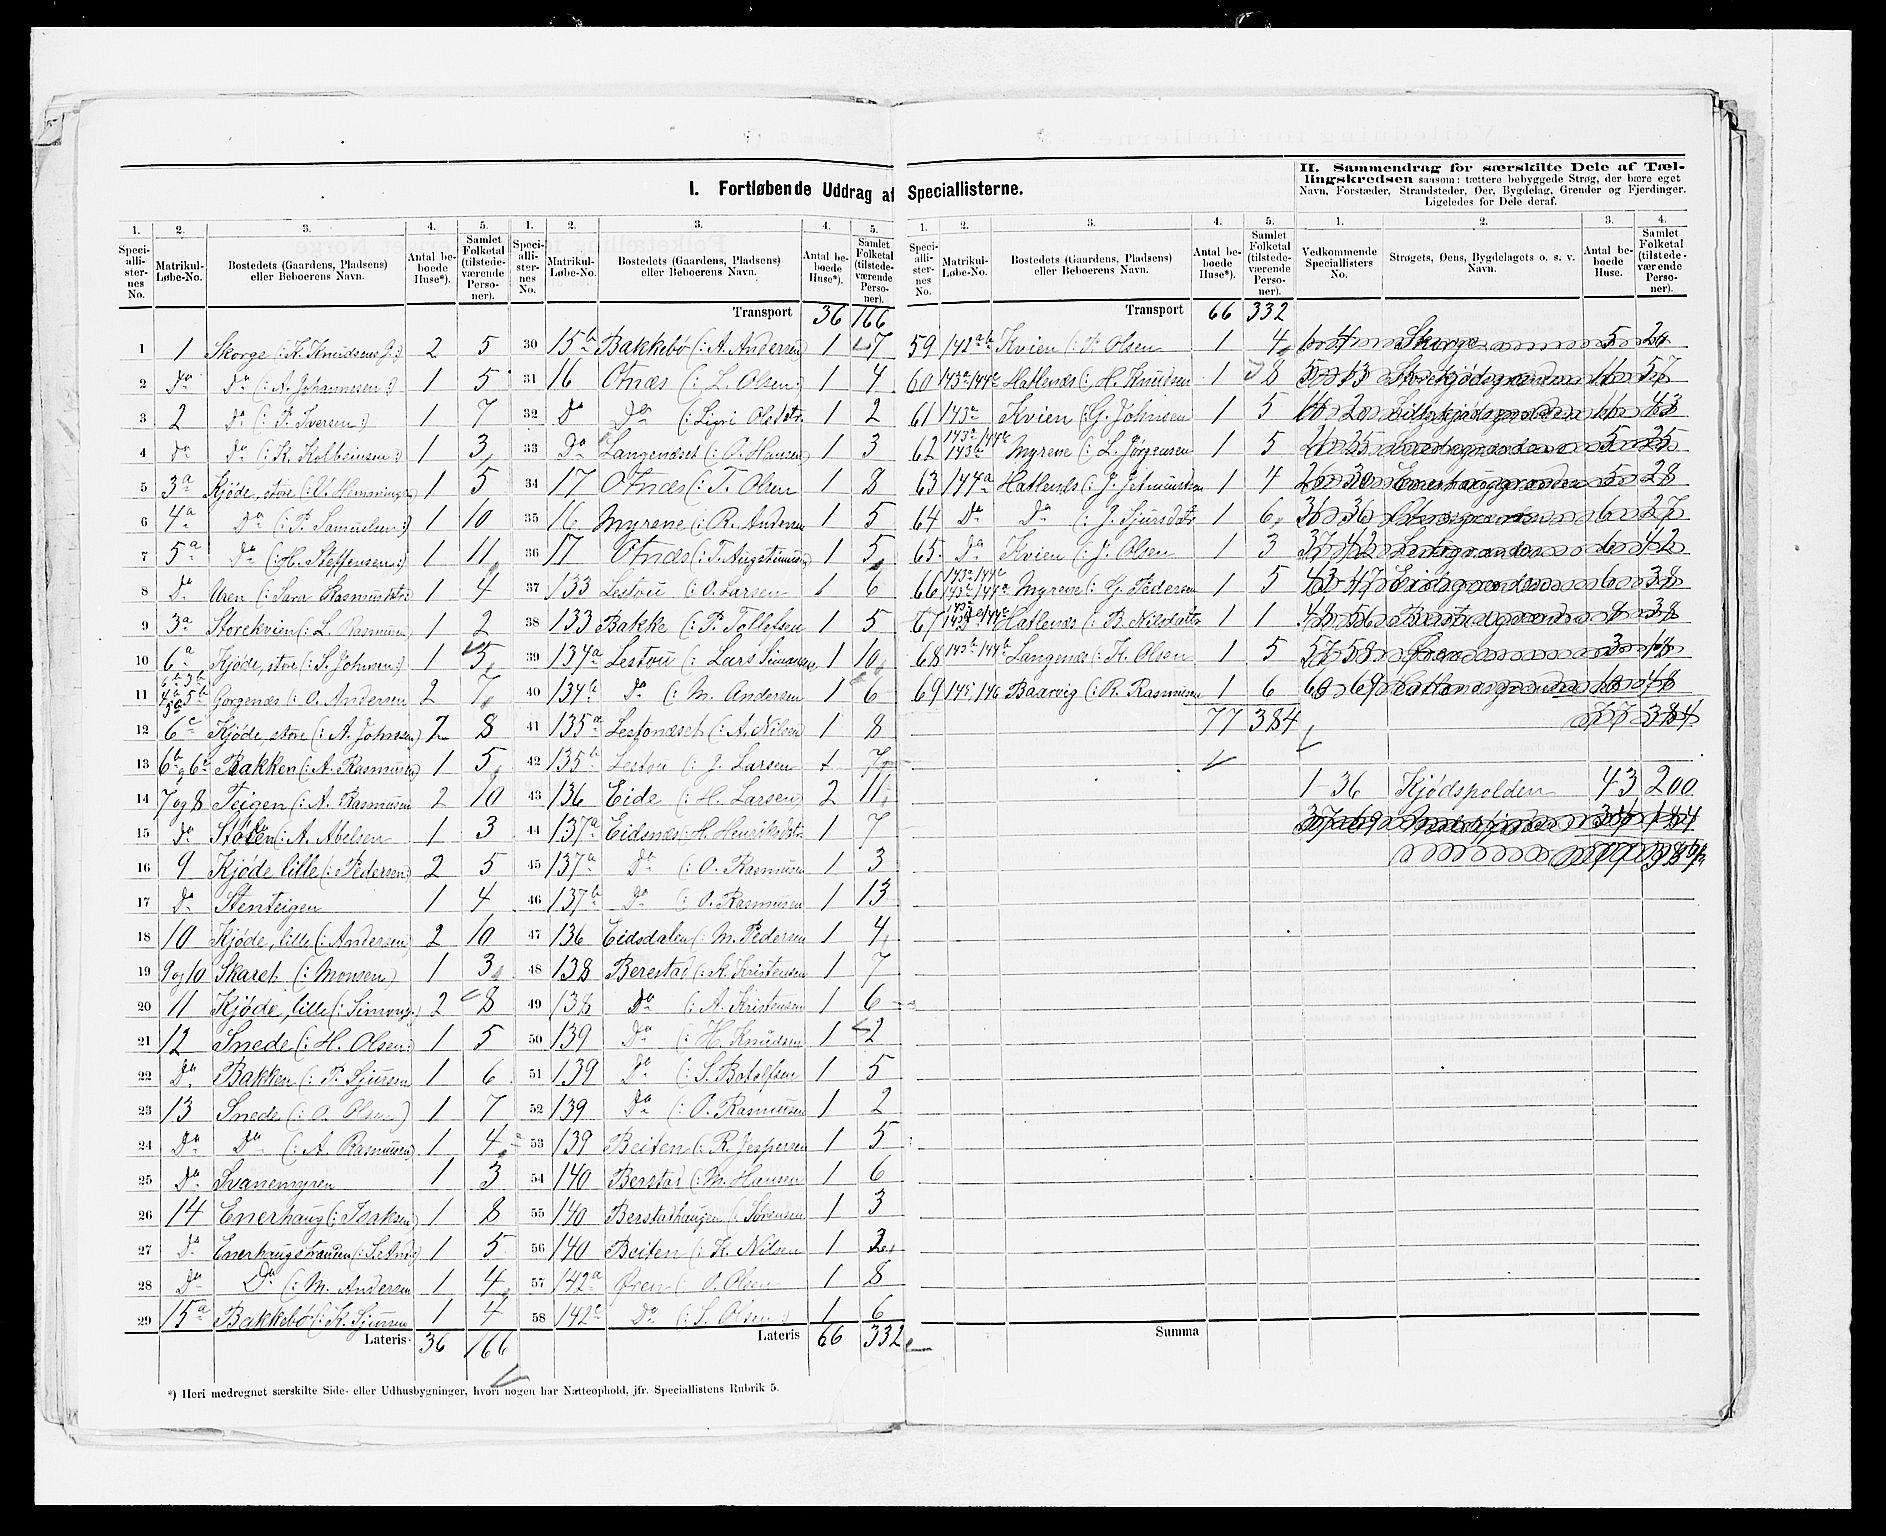 I. Fortløbende Uddrag af Speciallisterne.
II. Sammendrag for særskilte Dele af Tæl-
lingskredsen saasom: tættere bebyggede Strøg, der bære eget
Navn, Forstæder, Strandsteder, Øer, Bygdelag, Grender og Fjerdinger.
Ligeledes for Dele deraf.
1. 2. 3. 4. 5.
Speciallisternes No. Matrikul-Løbe-No. Bostedets (Gaardens, Pladsens) eller Beboerens Navn. Antal beboede Huse*). Samlet Folketal (tilstedeværende Personer).
1 1 Skorge (: K. Knudsens J:) 2 5
2 Do Do (: A. Johannesen:) 1 5
3 2 Do (: P. Iversen:) 1 7
4 Do Do (: K. Kolbeinsen:) 1 3
5 3a Kjøde, store (: U. Hemminge 1 5
6 4a Do (: P. Samuelsen:) 1 10
7 5a Do (: H. Steffensen:) 1 11
8 Do Uren (: Sara Rasmusdatr 1 4
9 3a Storekvien (: L. Rasmusen) 1 2
10 6a Kjøde, store (: S. Johnsen:) 1 5
11 6b 3b 4b 5b Gorgenæs (: O. Andersen 2 7
12 6c Kjøde, store (: A. Johnsen) 2 8
13 6b og 6c Bakken (: A. Rasmusen) 1 5
14 7 og 8 Teigen (: A. Rasmusen 2 10
15 Do Støten (: A. Abelsen 1 3
16 9 Kjøde lille (: Pedersen) 2 5
17 Do Stenteigen 1 4
18 10 Kjøde, lille (: Andersen) 2 10
19 9 og 10 Skaret (: Monsen) 1 3
20 11 Kjøde, lille (: Simons.) 2 8
21 12 Snede (: H. Olsen:) 1 5
22 Do Bakken (: P. Sjursen 1 6
23 13 Snede (: O. Olsen) 1 7
24 Do Do (: A. Rasmusen) 1 4
25 Do Svanemyren 1 3
26 14 Enerhaug (: Isaksen) 1 8
27 Do Enerhaugstranden (: S. And:) 1 5
28 Do Do (: M. Andersen 1 4
29 15a Bakkebø (: K. Sjursen 1 4
Lateris 36 166
*) Heri medregnet særskilte Side- eller Udhusbygninger, hvori nogen har Natteophold, jfr. Speciallistens Rubrik 5.
1. 2. 3. 4. 5.
Speciallisternes No. Matrikul-Løbe-No. Bostedets (Gaardens, Pladsens) eller Beboerens Navn. Antal beboede Huse*). Samlet Folketal (tilstedeværende Personer).
Transport 36 166
30 15b Bakkebø (: A. Andersen 1 7
31 16 Otnæs (: L. Olsen: 1 4
32 Do Do (: Ligri Olsdatr 1 2
33 Do Langenæset (: O. Hansen 1 3
34 17 Otnæs (: T. Olsen 1 8
35 16 Myrene (: R. Andersen 1 5
36 17 Otnæs (: T. Augstinusen 1 5
37 133 Lestou (: O. Larsen 1 6
38 133 Bakke (: P. Tollefsen 1 5
39 134a Lestou (: Lars Simonsen 1 10
40 134b Do (: M. Andersen 1 6
41 135a Lestonæset (: A. Nilsen 1 8
42 135b Lestou (: J. Larsen 1 7
43 136 Eide (: H. Larsen) 2 11
44 137a Eidsnæs (: H. Henriksdatr 1 7
45 137a Do (: O. Rasmusen 1 3
46 137b Do (: O. Rasmusen 1 13
47 136 Eidsdalen (: M. Pedersen 1 4
48 138 Berestad (: K. Kristensen 1 7
49 138 Do (: A. Kristensen 1 6
50 139 Do (: H. Knudsen 1 2
51 139 Do (: S. Botolfsen 1 5
52 139 Do (: O. Rasmusen 1 2
53 139 Beiten (: R. Jespersen 1 5
54 140 Berstad (: M. Hansen 1 6
55 140 Berstadhaugen (: Sørensen 1 3
56 140 Beiten (: K. Nilsen 1 2
57 142a Øren (: O. Olsen 1 8
58 142c Do (: S. Olsen:) 1 6
Lateris 66 332
1. 2. 3. 4. 5.
Speciallisternes No. Matrikul-Løbe-No. Bostedets (Gaardens, Pladsens) eller Beboerens Navn. Antal beboede Huse*). Samlet Folketal (tilstedeværende Personer).
Transport 66 332
59 142b Kvien (: P. Olsen 1 4
60 143a 144c Hatlenæs (: H. Knudsen 1 8
61 143a Kvien (: G. Johnsen 1 5
62 143a 144c 143b Myrene (: L. Jørgensen 1 5
63 144a Hatlenæs (: J. Jetmundsen 1 4
64 Do Do (: J. Sjursdatr 1 6
65 Do Kvien (: J. Olsen 1 3
66 Myrene (: G. Pedersen 1 5
67 Hatlenæs (: B. Nilsdatr 1 1
68 143b 144b Langenæs (: K. Olsen 1 5
69 145 146 Baarvig (: R. Rasmusen 1 6
77 384
Summa
1. 2. 3. 4.
Vedkommende Speciallisters No. Strøgets, Øens, Bygdelagets o. s. v. Navn. Antal beboede Huse. Samlet Folketal (tilstedeværende Personer).
1-4 Skorge 5 20
5-13 Storekjødsgrænden 11 57
5 28
6 27
37-42 6 42
43-47 Eidsgrænden 6 38
48-56
57-58 Øren 3 18
77 384
1-36 Kjødspolden 43 200
37-69 34 184